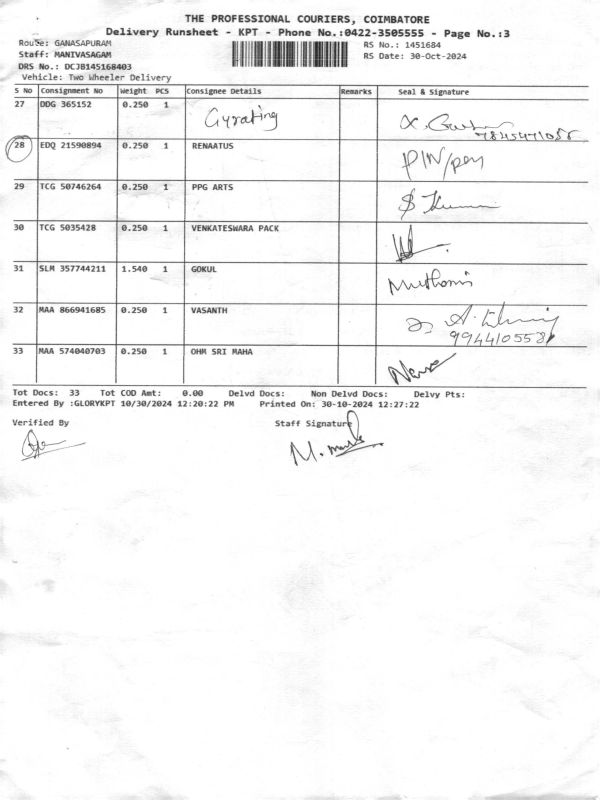 THE PROFESSIONAL COURIERS, COIMBATORE
Delivery Runsheet - KPT - Phone No.:0422-3505555 - Page No.:3
Route: GANASAPURAM
Staff: MANIVASAGAM
DRS No.: DCJB145168403
Vehicle: Two Wheeler Delivery
RS No.: 1451684
RS Date: 30-Oct-2024
S No Consignment No Weight PCS Consignee Details Remarks Seal & Signature
27 DDG 365152 0.250 1 Gyrating
28 EDQ 21590894 0.250 1 RENAATUS
29 TCG 50746264 0.250 1 PPG ARTS
30 TCG 5035428 0.250 1 VENKATESWARA PACK
31 SLM 357744211 1.540 1 GOKUL
32 MAA 866941685 0.250 1 VASANTH
33 MAA 574040703 0.250 1 OHM SRI MAHA
Tot Docs: 33 Tot COD Amt: 0.00 Delvd Docs: Non Delvd Docs: Delvy Pts:
Entered By :GLORYKPT 10/30/2024 12:20:22 PM Printed On: 30-10-2024 12:27:22
Verified By Staff Signature